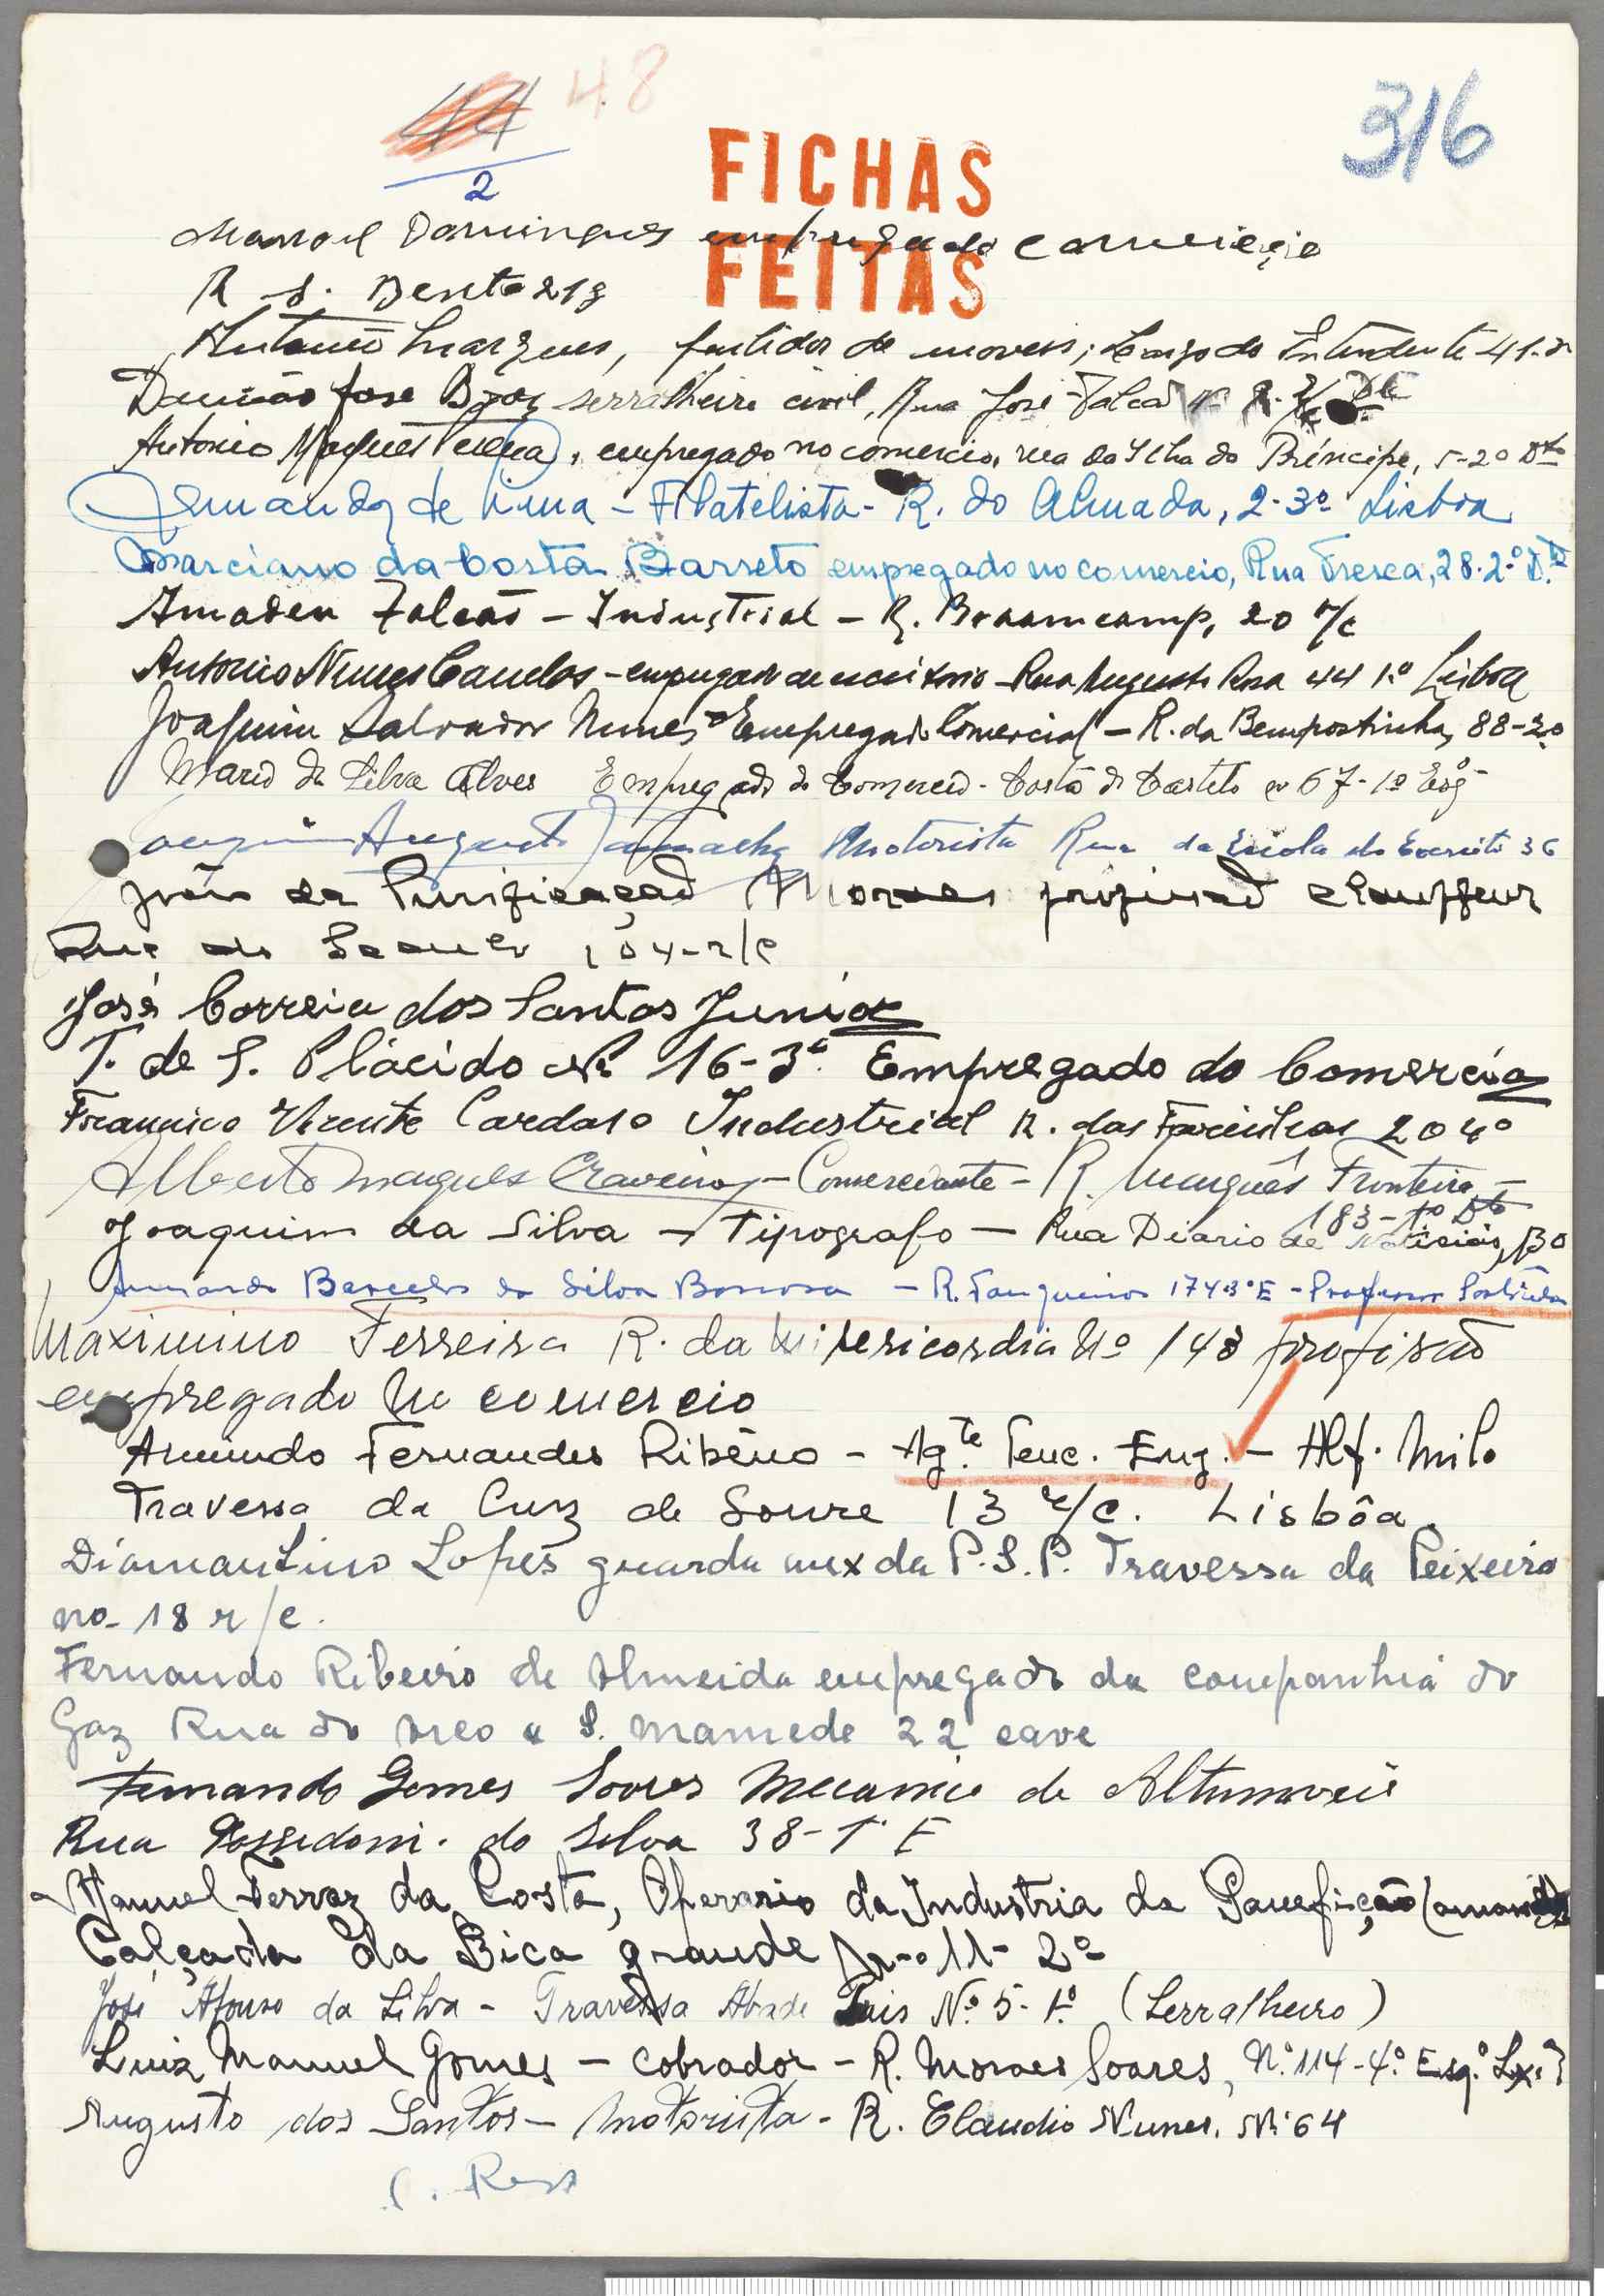 44 48
2
316
FICHAS
FEITAS
Manoel Domingues empregado comercio
R S. Bento 213
Antonio Marques, polidor de moveis, Largo do Intendente 41-2º
Damião Jose serralheiro civil, Rua José Falcão
Antonio empregado no comercio, rua da Ilha do Príncipe, 5-2º Dto
Armando de Lima - Filatelista - R. do Almada, 2-3º Lisboa
Marciano da Costa Barreto empregado no comercio, Rua Fresca, 28-2º D.to
Amadeu Falcão - Industrial - R. Braamcamp, 20 r/c
Antonio Nunes Canelas - empregado de escritorio - Rua Augusto Rosa 44 1º Lisboa
Joaquim Salvador Nunes - Empregado Comercial - R. da Bempostinha, 88-2º
Mario da Silva Alves Empregado do Comercio - Costa do Castelo nº 67-1º Esqº
Joaquim Augusto Motorista Rua da Escola do Exercito 36
João da Purificação Moraes profissão chauffeur
Rua do 104-r/c
José Correia dos Santos Junior
T. de S. Plácido Nº 16-3º. Empregado do Comercio
Francisco Vicente Cardoso Industrial R. das Farinhas 20 4º
Alberto Marques Craveiro - Comerciante - R. Marquês Fronteira -
183-1º Dto
Joaquim da Silva - Tipografo - Rua Diario de Noticias, 130
Armando Barcelos da Silva - R. Fanqueiros 174 3º E - Professor
Maximino Ferreira R. da Misericordia Nº 148 profisão
empregado no comercio
Armindo Fernandes Ribeiro - Ag.te Tenc. Eng. - Alf. Milº
Travessa da Cruz de Soure 13 r/c. Lisbôa.
Diamantino Lopes guarda aux da P.S.P. Travessa da Peixeira
no- 18 r/c.
Fernando Ribeiro de Almeida empregado da companhia do
Gaz Rua do Arco a S. Mamede 22 cave
Fernando Gomes Soares Mecanico de Altumoveis
Rua Possedoni. da Silva 38-1º E
Manuel Ferraz da Costa, Operario da Industria de Panefição
Calçada da Bica grande n-o 11- 2º
José Afonso da Silva - Travessa Nº 5-1º (Serralheiro)
Luiz Manuel Gomes - cobrador - R. Moraes Soares, N.º 114-4.º Esq.º Lx.ª
Augusto dos Santos - Motorista - R. Claudio Nunes. Nº 64